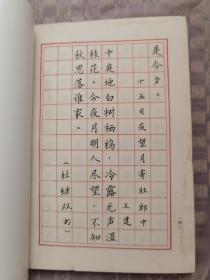 是今夕。
十五日夜望月寄杜郎中
王建
中庭地白树栖鸦，冷露无声湿
桂花。今夜月明人尽望，不知
秋思落谁家。